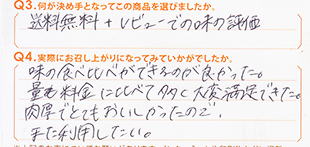 Q3.何が決め手となってこの商品を選びましたか。
送料無料+レビューでの味の評価
Q4.実際にお召し上がりになってみていかがでしたか。
味の食べ比べができるのが良かった。
量も料金に比べて多く大変満足できた。
肉厚でとてもおいしかったので、
また利用したい。